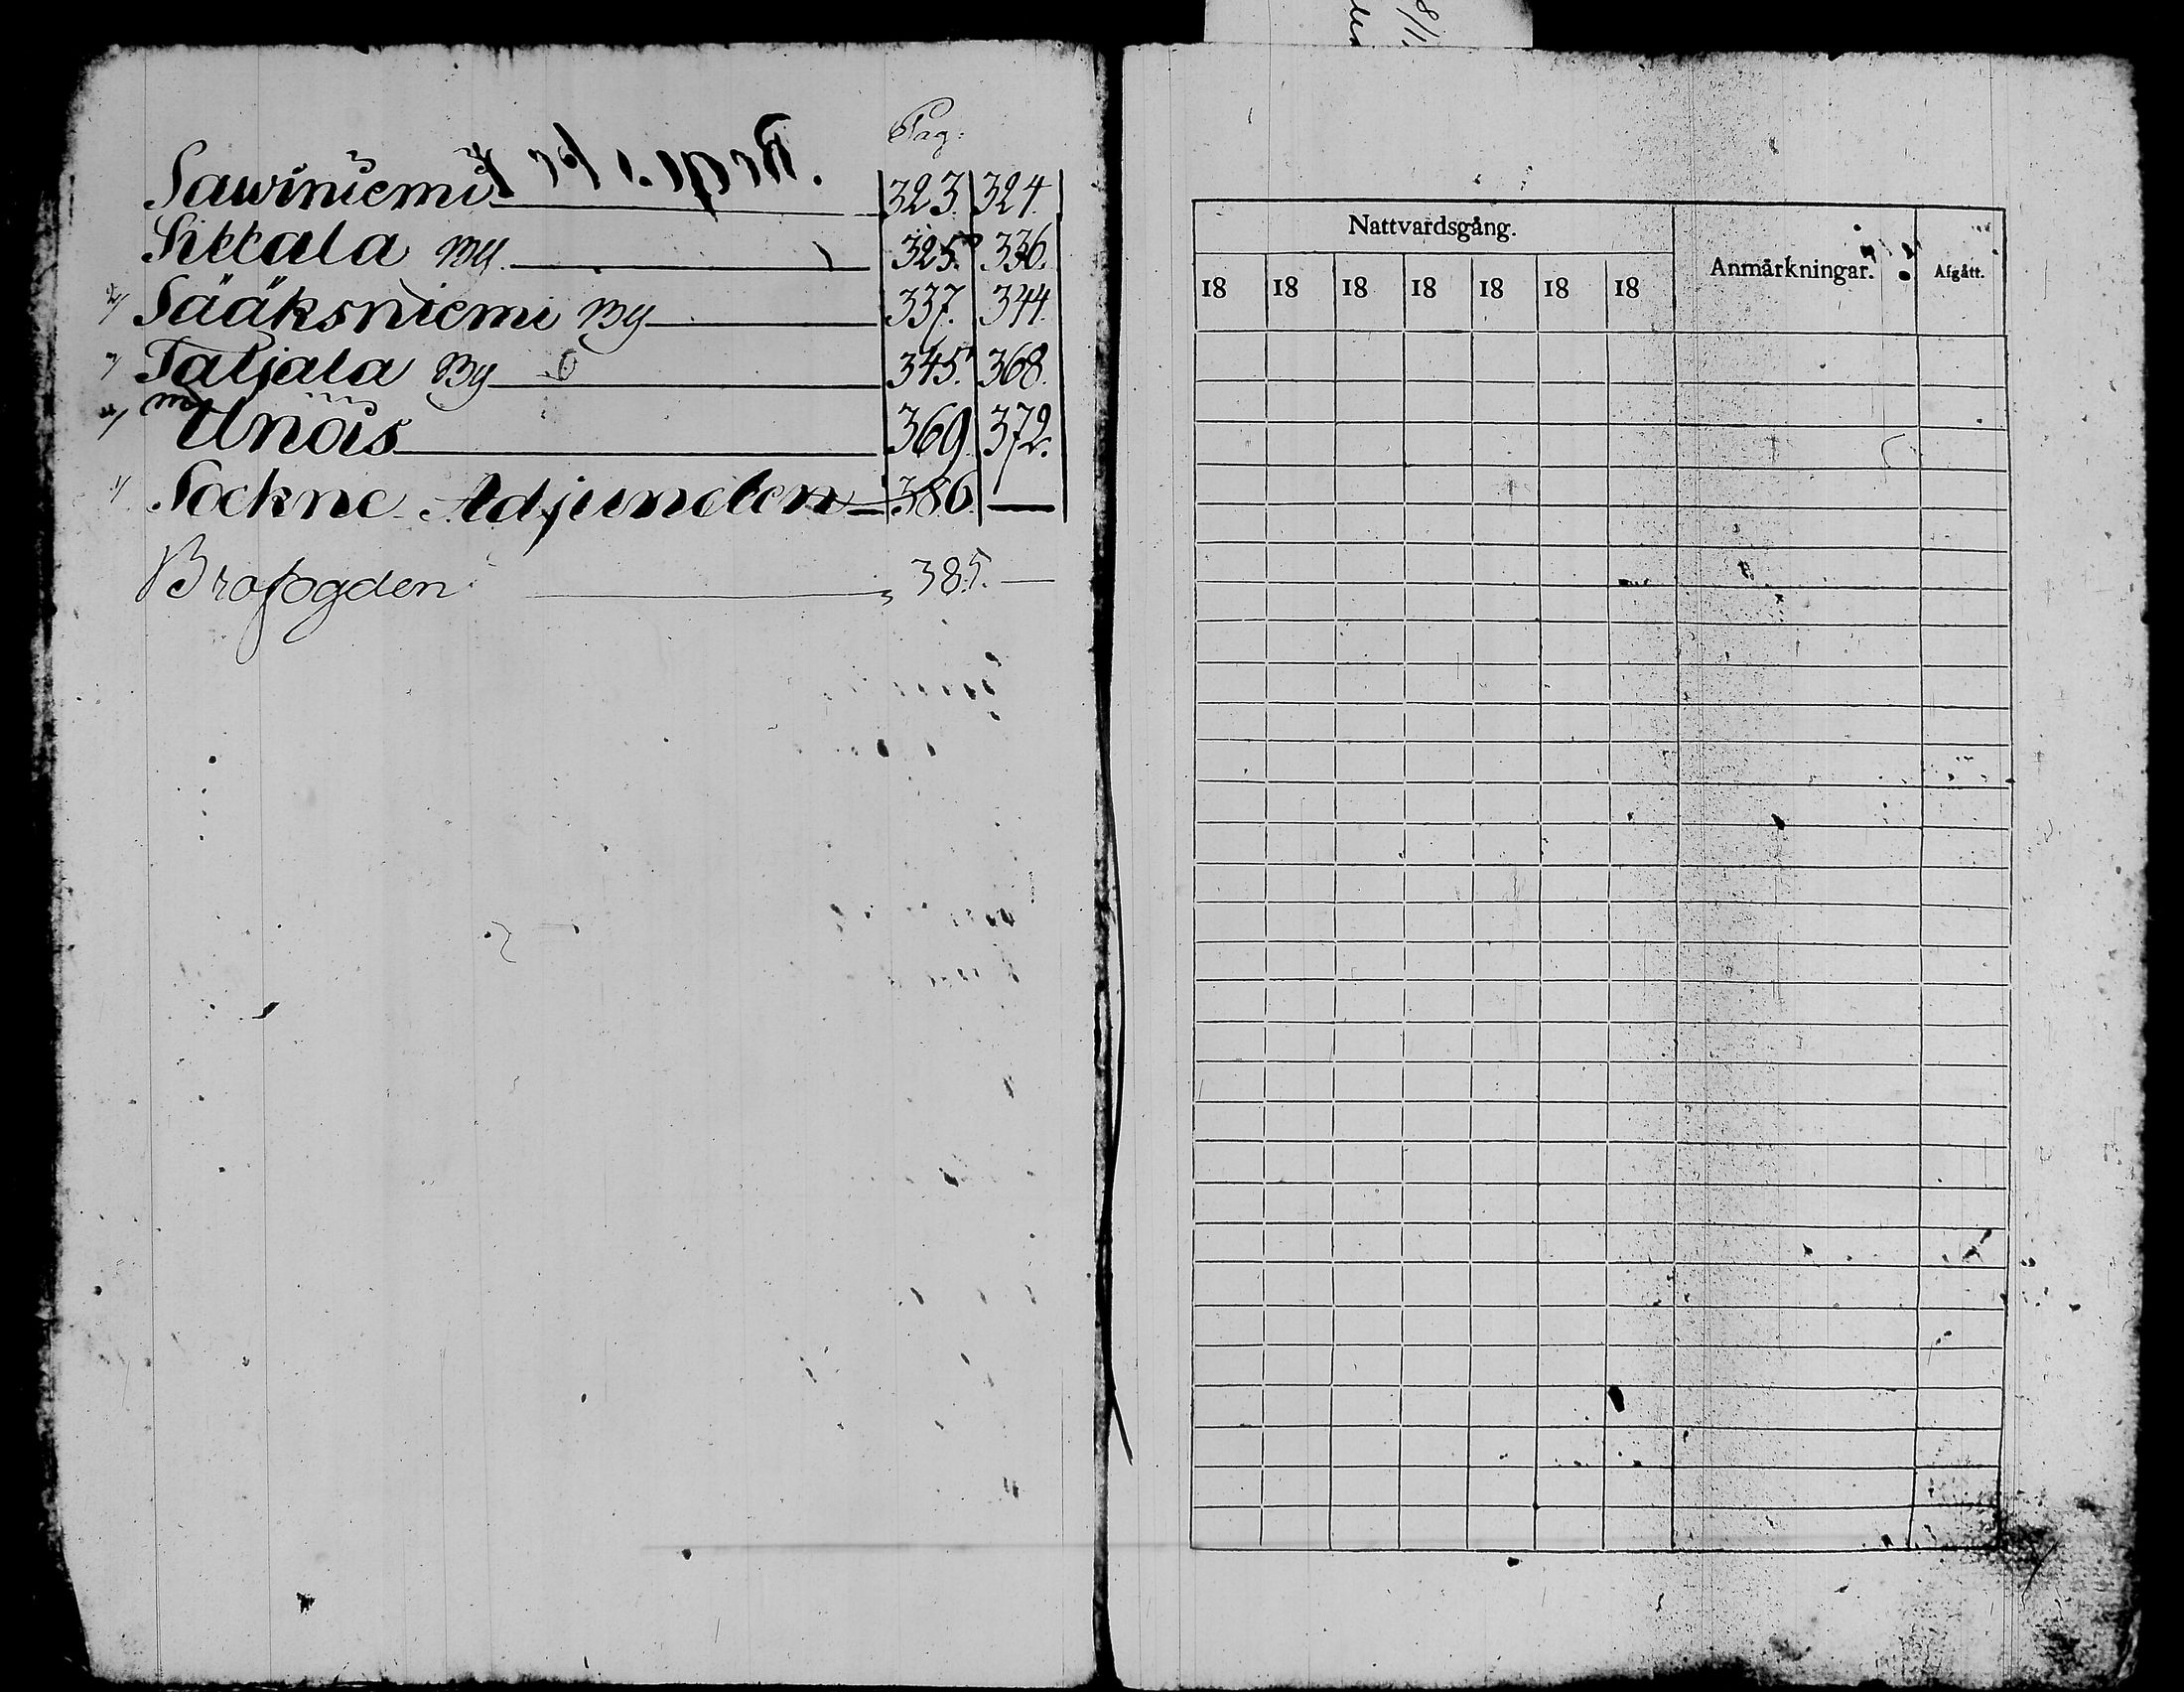 Pag:
Sawiniemi 323. 324.
Sittala By. 325. 336.
2/ Sääksniemi By 337. 344.
3/ Taljala By 345. 368.
4/ Unäis 369. 372.
1/ Sockne Adjuncten 386. —
Brofogden 385. —
Nattvardsgång. Anmärkningar. Afgått.
18 18 18 18 18 18 18